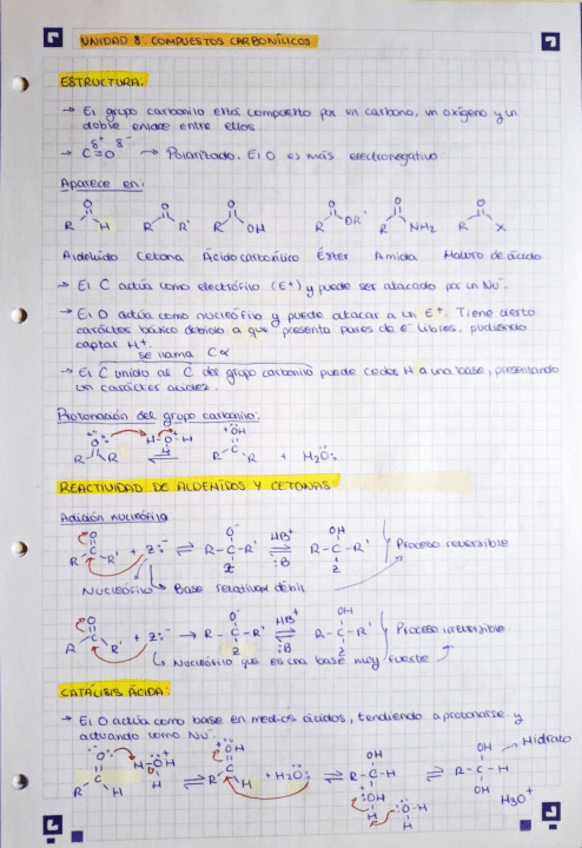 UNIDAD 8: COMPUESTOS CARBONÍLICOS
ESTRUCTURA:
→ El grupo carbonilo está compuesto por un carbono, un oxígeno y un
doble enlace entre ellos.
→ C=O δ+ δ- → Polarizado. El O es más electronegativo
Aparece en:
O O O O O O
R H R R' R OH R OR' R NH2 R X
Aldehído Cetona Ácido carboxílico Éster Amida Haluro de ácido
→ El C actúa como electrófilo (E+) y puede ser atacado por un Nu-.
→ El O actúa como nucleófilo y puede atacar a un E+. Tiene cierto
carácter básico debido a que presenta pares de e- libres, pudiendo
captar H+.
se llama Cα
→ El C unido al C del grupo carbonilo puede ceder H a una base, presentando
un carácter acidez.
Protonación del grupo carbonilo:
O: H-O+-H +OH
R R H R C R + H2O:
REACTIVIDAD DE ALDEHÍDOS Y CETONAS
Adición nucleófila
O O- HB+ OH
R C R' + Z:- ⇌ R-C-R' ⇌ R-C-R' Proceso reversible
Z :B Z
Nucleófilo Base relativam débil
O O- HB+ OH
R C R' + Z:- → R-C-R' ⇌ R-C-R' Proceso irreversible
Z :B Z
Nucleófilo que es una base muy fuerte
CATÁLISIS ÁCIDA:
→ El O actúa como base en medios ácidos, tendiendo a protonarse y
actuando como Nu-.
Hidrato
O: H-OH +OH OH OH
R C H H ⇌ R C H + H2O: ⇌ R-C-H ⇌ R-C-H
:OH :O-H OH H3O+
H H